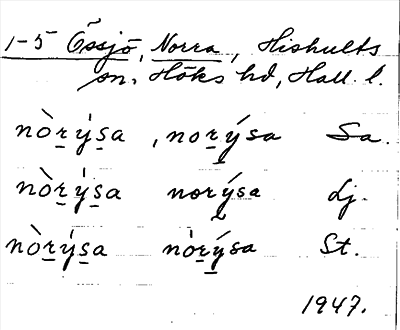 1-5 Össjö, Norra, Hishults
sn. Höks hd, Hall. l.
nòrýsa, norýsa Sa.
nòrýsa norýsa Lj.
nòrýsa nòrýsa St.
1947.